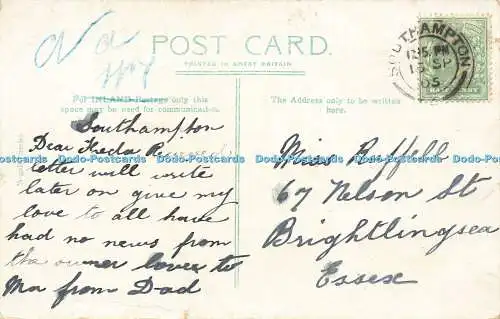 POST CARD.
PRINTED IN GREAT BRITAIN
For INLAND Postage only this
space may be used for communication.
The Address only to be written
here.
SOUTHAMPTON
12.15 PM
SP
05
HALFPENNY
Southampton
Dear Freda
letter will write
later on give my
love to all have
had no news from
the owner love to
Ma from Dad
Miss Ruffell
67 Nelson St
Brightlingsea
Essex
Postcards www.Postcards www.Postcards www.Postcards